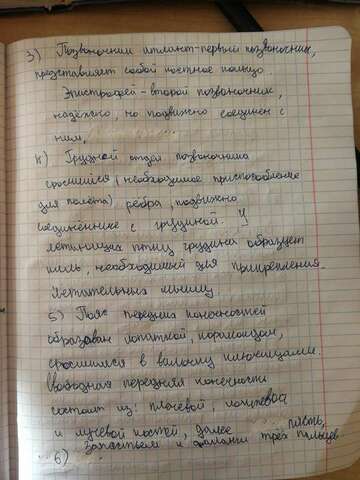 3) Позвоночник атлант-первый позвоночник,
представляет собой костное кольцо.
Эпистрофей-второй позвоночник,
надёжно, но подвижно соединен с
ним.
4) Грудной отдел позвоночника
сросшийся (необходимое приспособление
для полета) ребра, подвижно
соединённые с грудиной. У
летающих птиц грудина образует
киль, необходимый для прикрепления
летательных мышц
5) Пояс передних конечностей
образован лопаткой, коракоидом,
сросшимися в вилочку ключицами.
Свободная передняя конечность
состоит из: плечевой, локтевой
и лучевой костей, далее пясть,
запястьем и фаланги трёх пальцев
6)